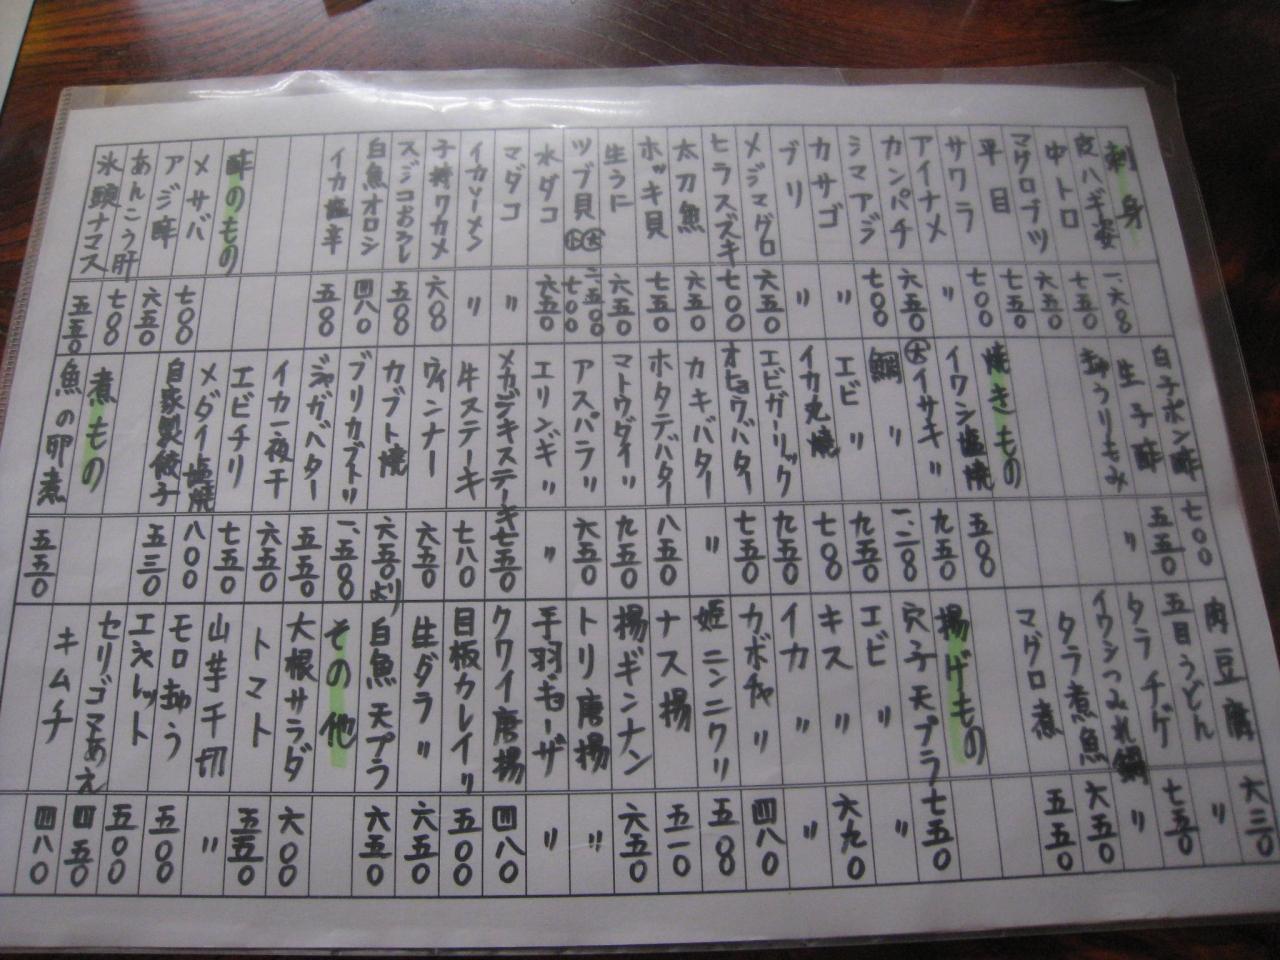 刺身
皮ハギ姿 一、六〇〇
中トロ 七五〇
マグロブツ 六五〇
平目 七五〇
サワラ 七〇〇
アイナメ 〃
カンパチ 六五〇
シマアジ 七〇〇
カサゴ 〃
ブリ 〃
メジマグロ 六五〇
ヒラスズキ 七〇〇
太刀魚 六五〇
ホッキ貝 七五〇
生うに 六五〇
ツブ貝 小 大 七〇〇 二、五〇〇
水ダコ 六五〇
マダコ 〃
イカソーメン 〃
子持ワカメ 六〇〇
スジコおろし 五〇〇
白魚オロシ 四八〇
イカ塩辛 五〇〇
酢のもの
メサバ 七〇〇
アジ酢 六五〇
あんこう肝 七〇〇
氷頭ナマス 五五〇
白子ポン酢 七〇〇
生子酢 五五〇
うりもみ 〃
焼きもの
イワシ塩焼 五〇〇
大イサキ〃 九五〇
鯛〃 一、二〇〇
エビ〃 九五〇
イカ丸焼 七〇〇
エビガーリック 九五〇
オヒョウバター 七五〇
カキバター 〃
ホタテバター 八五〇
マトウダイ〃 九五〇
アスパラ〃 六五〇
エリンギ〃 〃
メカジキステーキ 七五〇
牛ステーキ 七八〇
ウィンナー 六五〇
カブト焼 六五〇より
ブリカブト〃 一、五〇〇
ジャガバター 五五〇
イカ一夜干 六五〇
エビチリ 七五〇
メダイ塩焼 八〇〇
自家製餃子 五三〇
煮もの
魚の卵煮 五五〇
肉豆腐 六三〇
五目うどん 〃
タラチゲ 七五〇
イワシつみれ鍋 〃
タラ煮魚 六五〇
マグロ煮 五五〇
揚げもの
穴子天プラ 七五〇
エビ〃 〃
キス〃 六九〇
イカ〃 〃
カボチャ〃 四八〇
姫ニンニク〃 五〇〇
ナス揚 五一〇
揚ギンナン 六五〇
トリ唐揚 〃
手羽ギョーザ 〃
クワイ唐揚 四八〇
目板カレイ〃 五〇〇
生ダラ〃 六五〇
白魚天プラ 六五〇
その他
大根サラダ 六〇〇
トマト 五五〇
山芋千切 〃
モロきゅう 五〇〇
エシャレット 五〇〇
セリゴマあえ 四五〇
キムチ 四八〇